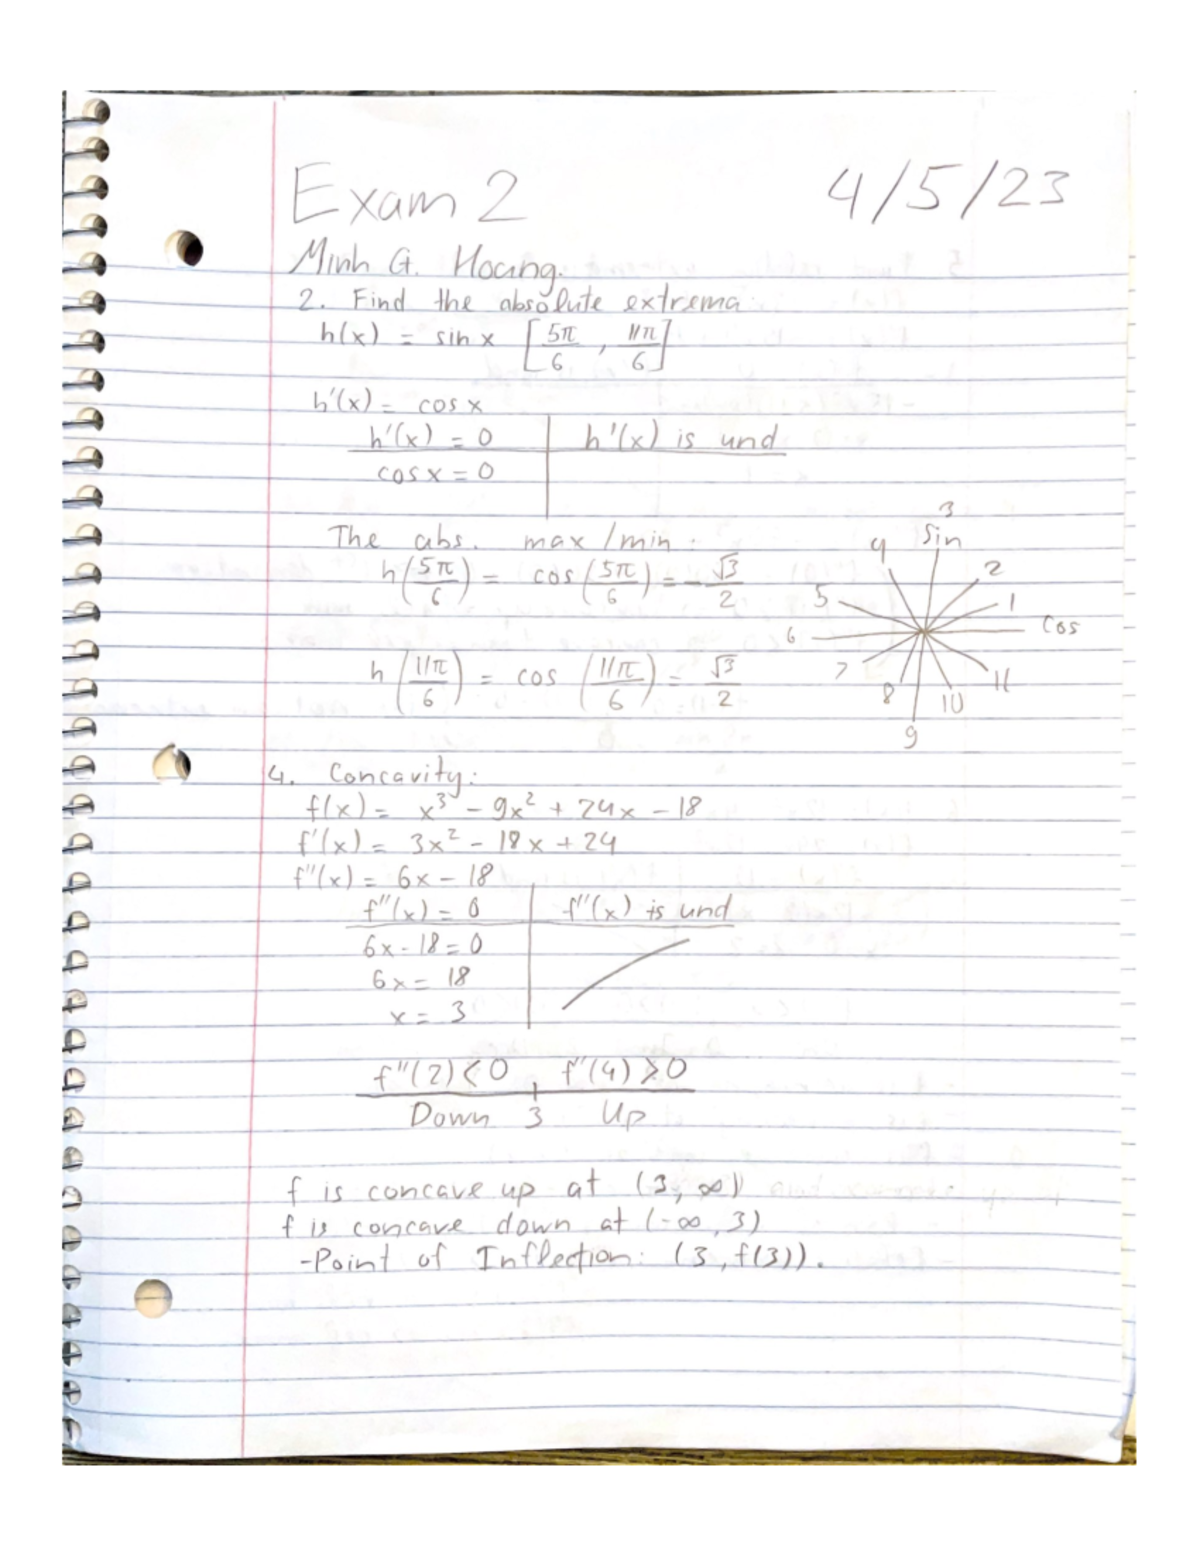 Exam 2 4/5/23
Minh G. Hoang.
2. Find the absolute extrema:
h(x) = sin x [5π/6 , 11π/6]
h'(x) = cos x
h'(x) = 0 | h'(x) is und
cos x = 0
The abs. max/min:
h(5π/6) = cos(5π/6) = -√3/2
h(11π/6) = cos(11π/6) = √3/2
3
sin
4
2
5
1
6
cos
7
8
9
10
11
4. Concavity:
f(x) = x³ - 9x² + 24x - 18
f'(x) = 3x² - 18x + 24
f''(x) = 6x - 18
f''(x) = 0 | f''(x) is und
6x - 18 = 0
6x = 18
x = 3
f''(2) < 0 , f''(4) > 0
Down 3 Up
f is concave up at (3, ∞)
f is concave down at (-∞, 3)
-Point of Inflection: (3, f(3)).